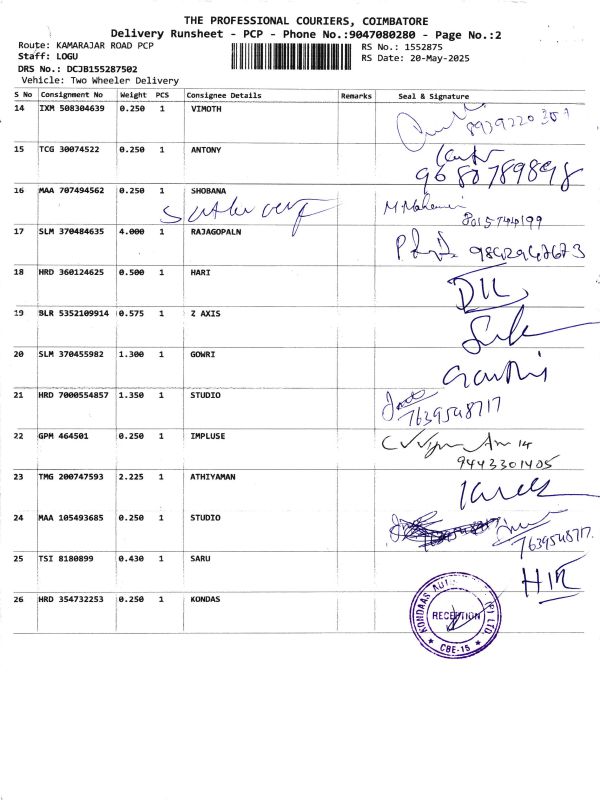 THE PROFESSIONAL COURIERS, COIMBATORE
Delivery Runsheet - PCP - Phone No.:9047080280 - Page No.:2
Route: KAMARAJAR ROAD PCP
Staff: LOGU
DRS No.: DCJB155287502
Vehicle: Two Wheeler Delivery
RS No.: 1552875
RS Date: 20-May-2025
S No Consignment No Weight PCS Consignee Details Remarks Seal & Signature
14 IXM 508304639 0.250 1 VIMOTH
15 TCG 30074522 0.250 1 ANTONY
9680789898
16 MAA 707494562 0.250 1 SHOBANA
17 SLM 370484635 4.000 1 RAJAGOPALN
9842947673
18 HRD 360124625 0.500 1 HARI
19 BLR 5352109914 0.575 1 Z AXIS
20 SLM 370455982 1.300 1 GOWRI
21 HRD 7000554857 1.350 1 STUDIO
7639548717
22 GPM 464501 0.250 1 IMPLUSE
9443301405
23 TMG 200747593 2.225 1 ATHIYAMAN
24 MAA 105493685 0.250 1 STUDIO
7639548717
25 TSI 8180899 0.430 1 SARU
26 HRD 354732253 0.250 1 KONDAS
KONDAAS AUT (P) LTD.
RECEPTION
CBE-15